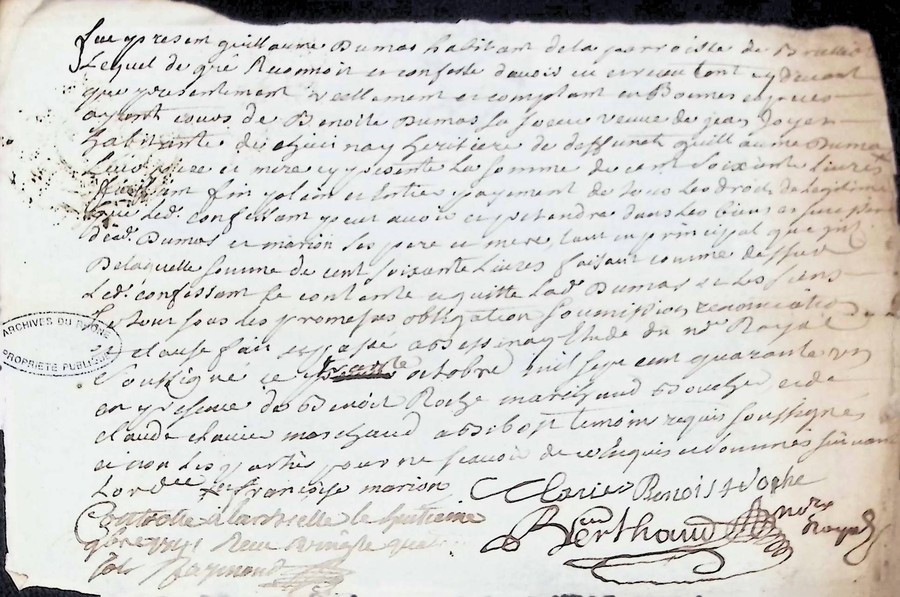 fut present guillaume Dumas habitant de la parroisse de
Lequel de gré Reconnoit et confesse davoir eu et receu tant cy devant
que presentement reellement et comptant en Bonnes especes
ayant cours de Benoite Dumas sa soeur veuve de jean
habitante de heritiere de deffunct guillaume Dumas
pere et mere cy presente La somme de cent soixante Livres
faisant fin plein et entier payement de tous Les droits de Legitime
que Led. confessant peut avoir et pretendre dans Les biens et
dud. Dumas et marion ses pere et mere tant en principal que
De laquelle somme de cent soixante Livres faisant comme dessus
Led. confessant se contente et quitte Lad. Dumas et Les siens
Le tout sous Les promesses obligation soumission renonciation
et clause fait et passé a Bessenay Etude du no.re Royal
soussigné ce octobre mil sept cent quarante un
en presence de Benoit Roche marchand et de
claude clavier marchand a temoins requis soussignés
et non Les parties pour ne scavoir de ce Enquis et sommés suivant
Lord.ce francoise marion
Clavier Benoist Roche
Controllé à larbrelle le huitieme
Berthaud no.re Royal
9bre 1741 Receu